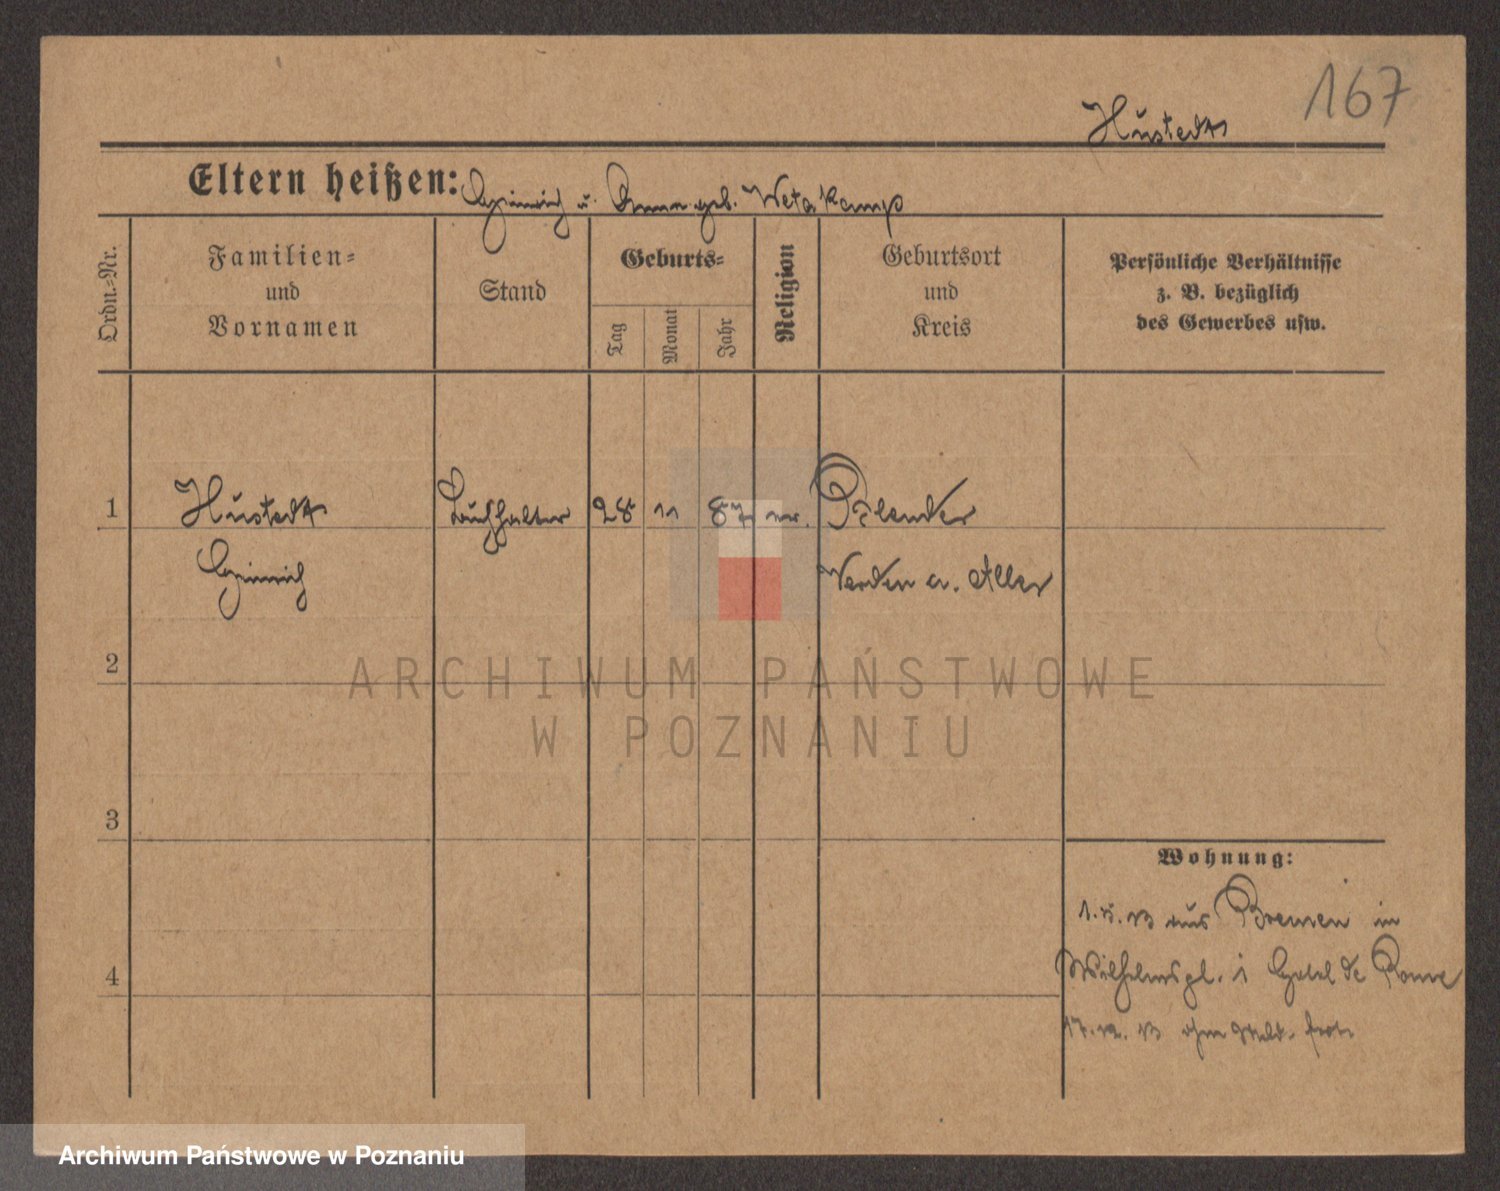 167
Hustedt
Eltern heißen: Heinrich u. Anna geb. Wetekamp
Ordn.-Nr.
Familien-
und
Vornamen
Stand
Geburts-
Tag
Monat
Jahr
Religion
Geburtsort
und
Kreis
Persönliche Verhältnisse
z. B. bezüglich
des Gewerbes usw.
1
Hustedt
Heinrich
Buchhalter
28
11
87
ev.
Verden a. Aller
2
3
4
Wohnung:
aus Bremen in
Wilhelmspl. 1 Hotel de Rome
17.12.13 ohne Meld. fort
ARCHIWUM PAŃSTWOWE
W POZNANIU
Archiwum Państwowe w Poznaniu